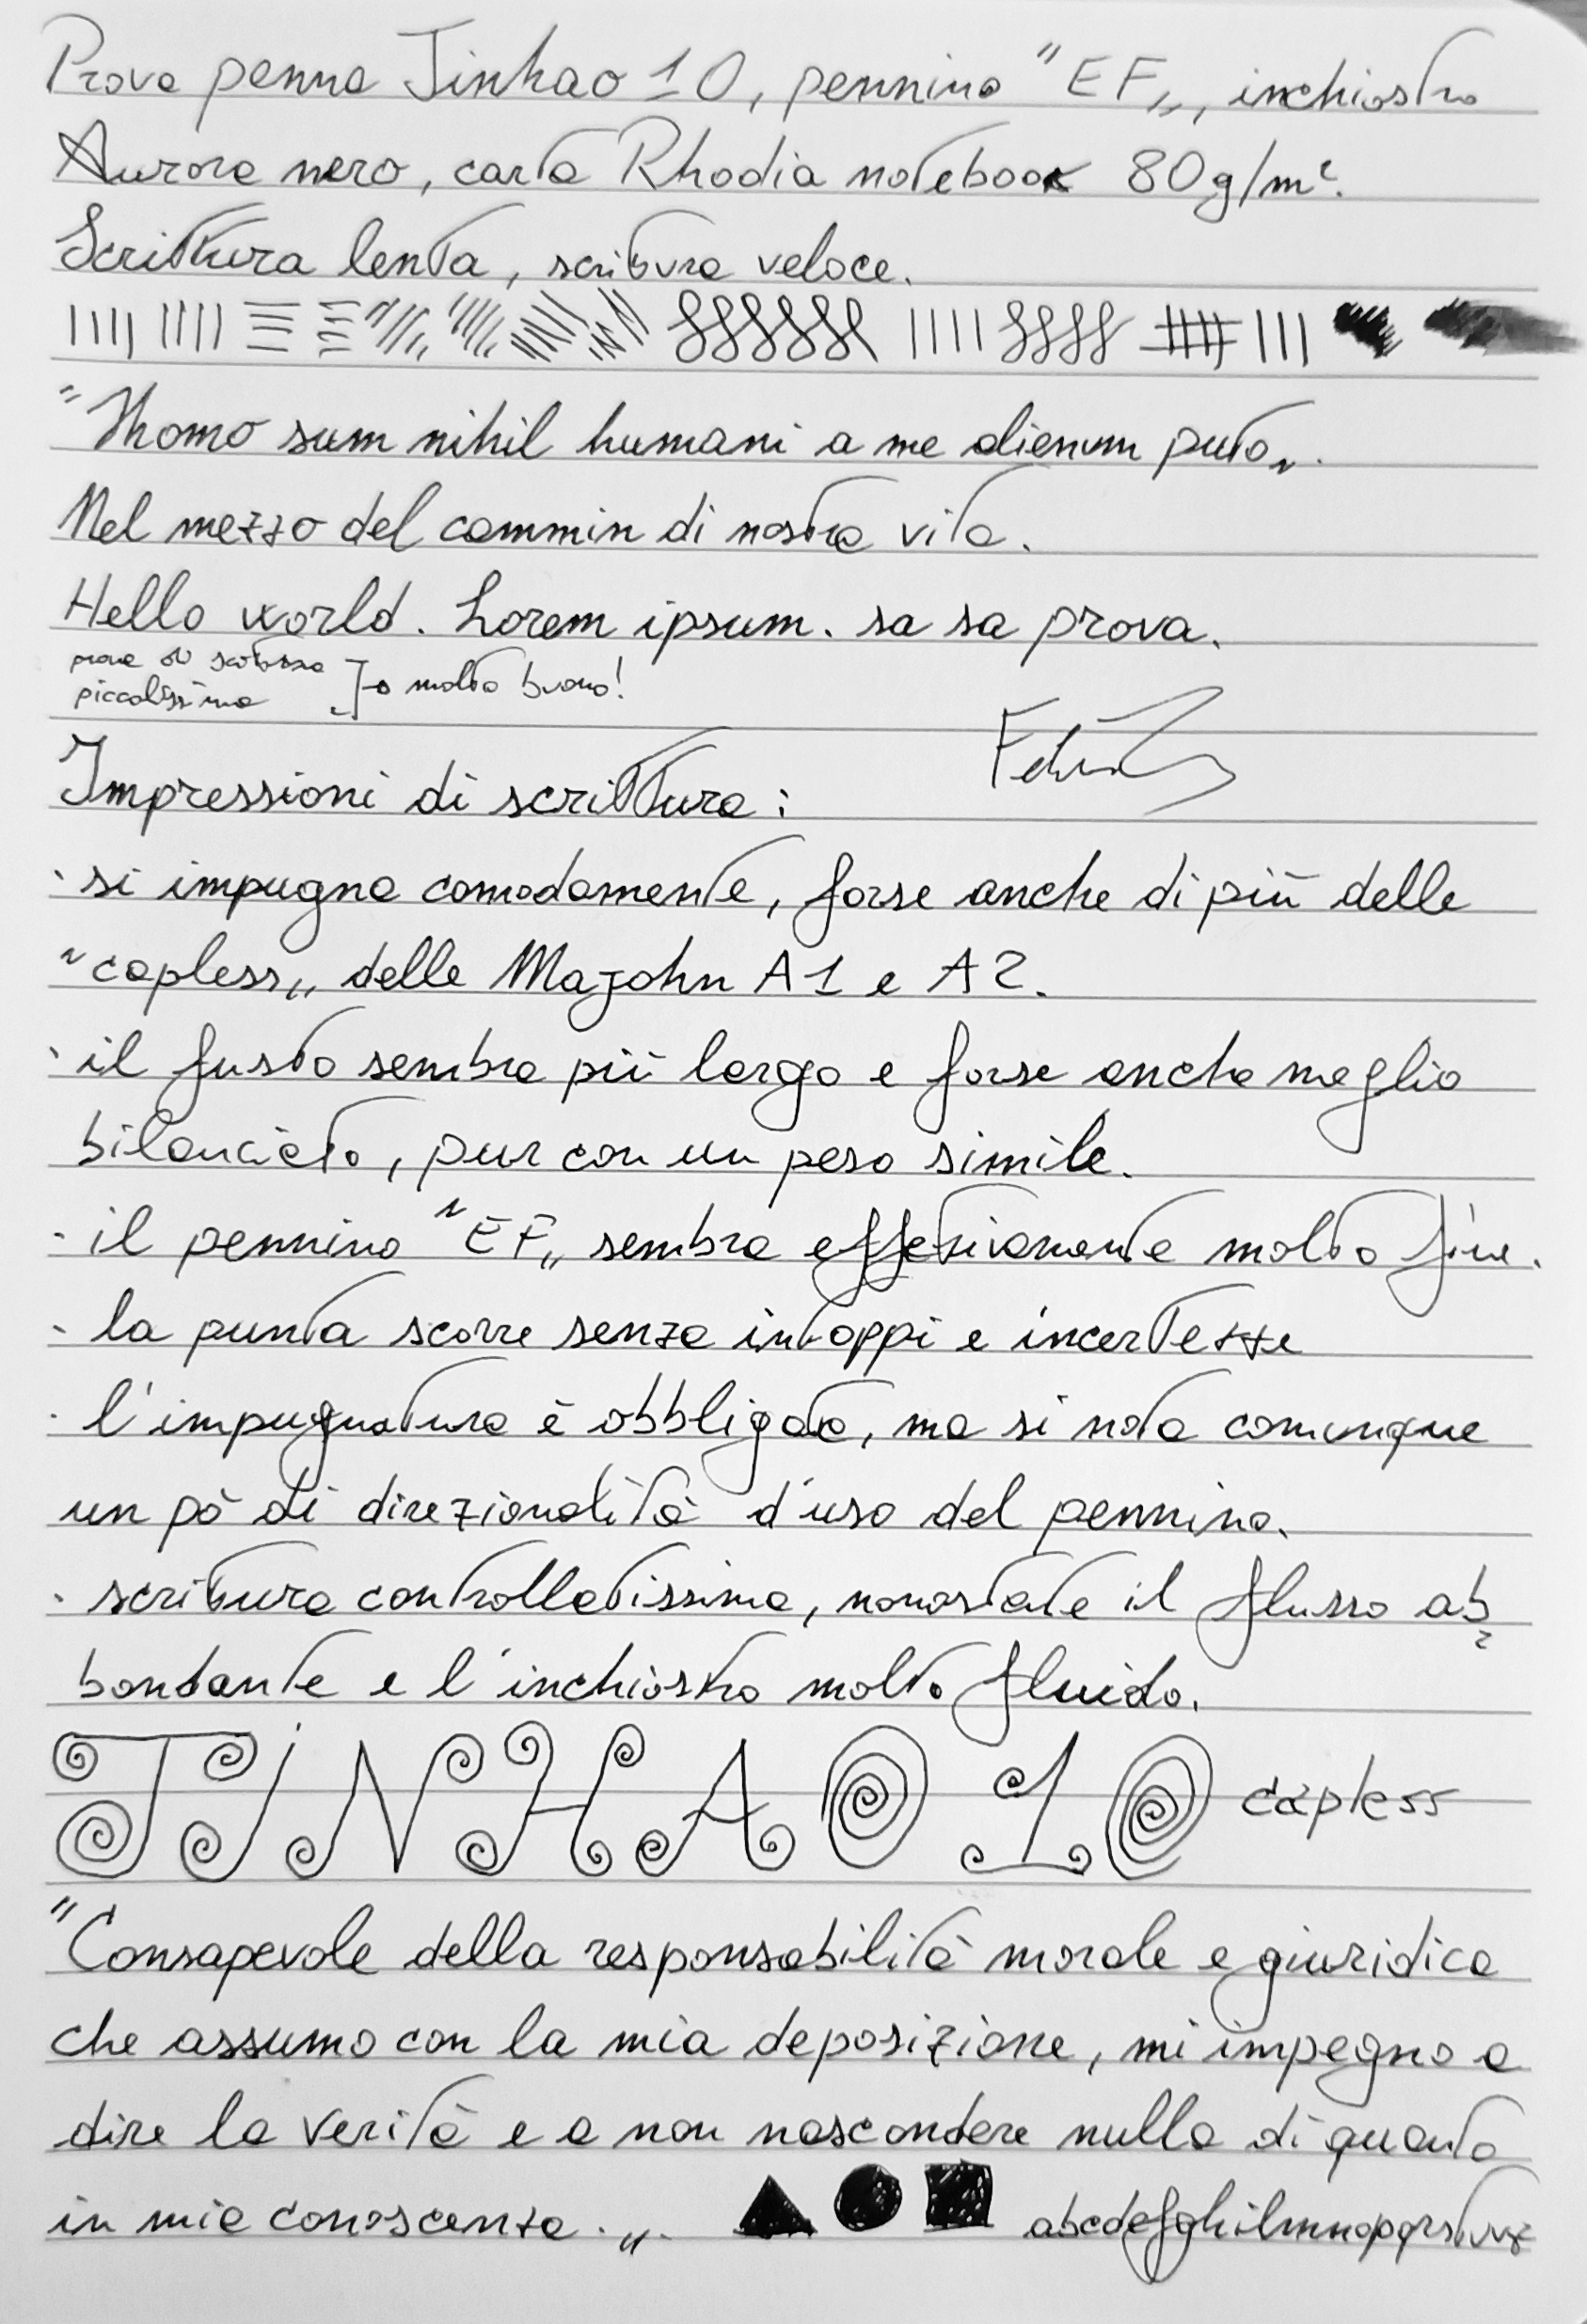 Prova penna Jinhao 10, pennino "EF„, inchiostro
Aurora nero, carta Rhodia notebook 80g/m².
Scrittura lenta, scrittura veloce.
"Homo sum nihil humani a me alienum puto„.
Nel mezzo del cammin di nostra vita.
Hello world. Lorem ipsum. sa sa prova.
prova di scrittura
piccolissima
molto buono!
Impressioni di scrittura:
· si impugna comodamente, forse anche di più delle
"capless„ delle Majohn A1 e A2.
· il fusto sembra più largo e forse anche meglio
bilanciato, pur con un peso simile.
· il pennino "EF„ sembra effettivamente molto fine.
· la punta scorre senza intoppi e incertezze
· l'impugnatura è obbligata, ma si nota comunque
un pò di direzionalità d'uso del pennino.
· scrittura controllatissima, nonostante il flusso ab
bondante e l'inchiostro molto fluido.
JiNHAO 10 capless
"Consapevole della responsabilità morale e giuridica
che assumo con la mia deposizione, mi impegno a
dire la verità e a non nascondere nulla di quanto
in mia conoscenza.„. abcdefghilmnopqrstuvz